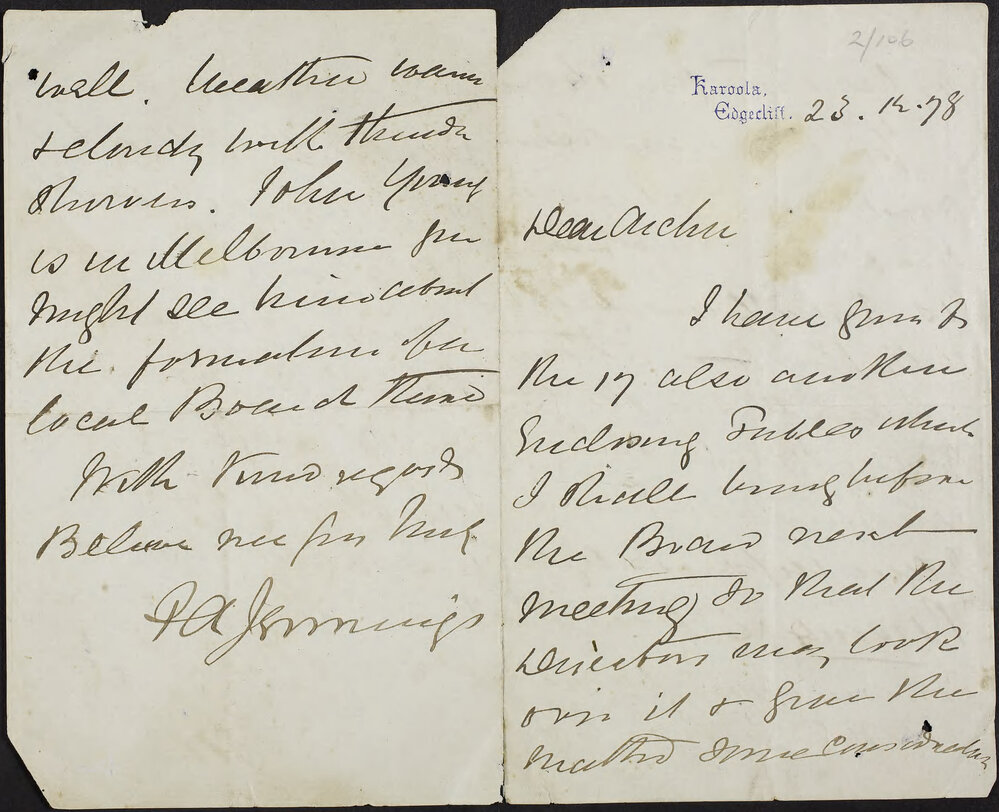 2/106
Karoola,
Edgecliff. 23. 12. 78
Dear Archer
I have yours of
the 17 also another
Enclosing Tables which
I shall bring before
the Board next
meeting so that the
Directors may look
over it & give the
matter some consideration
well. Weather warm
& cloudy with thunder
showers. John Young
is in Melbourne you
might see him about
the formation of a
local Board there
With kind regards
Believe me yrs truly
P A Jennings